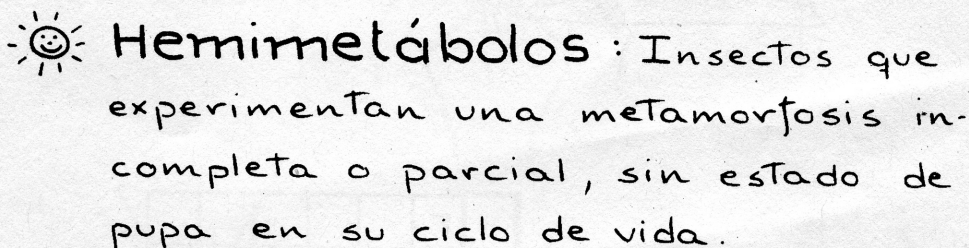 Hemimetábolos: Insectos que
experimentan una metamorfosis in-
completa o parcial, sin estado de
pupa en su ciclo de vida.